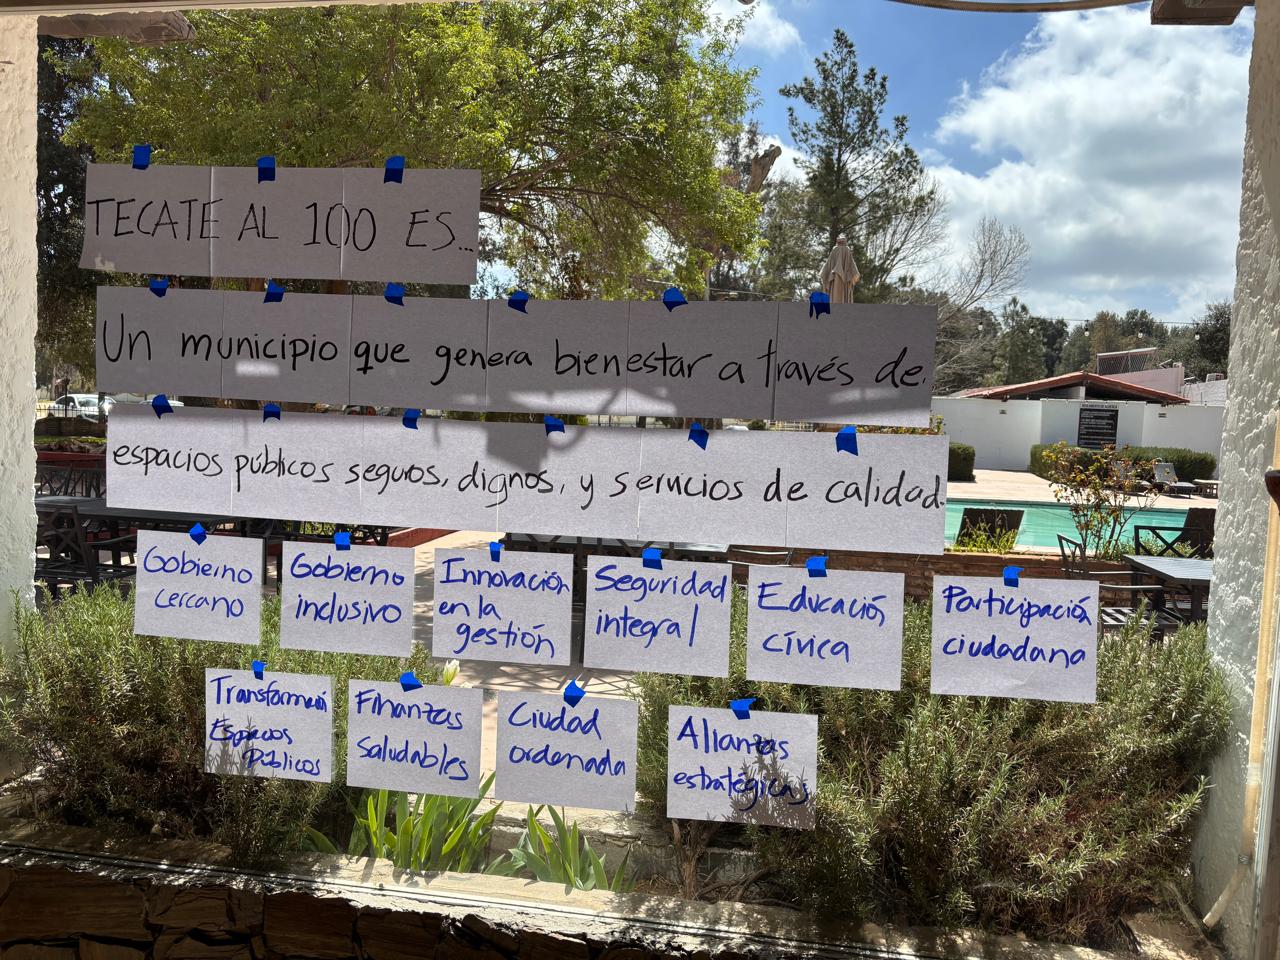 TECATE AL 100 ES...
Un municipio que genera bienestar a través de.
espacios públicos seguros, dignos, y servicios de calidad.
Gobierno
cercano
Gobierno
inclusivo
Innovación
en la
gestión
Seguridad
integral
Educación
cívica
Participación
ciudadana
Espacios
Públicos
Finanzas
saludables
Ciudad
ordenada
Alianzas
estratégicas